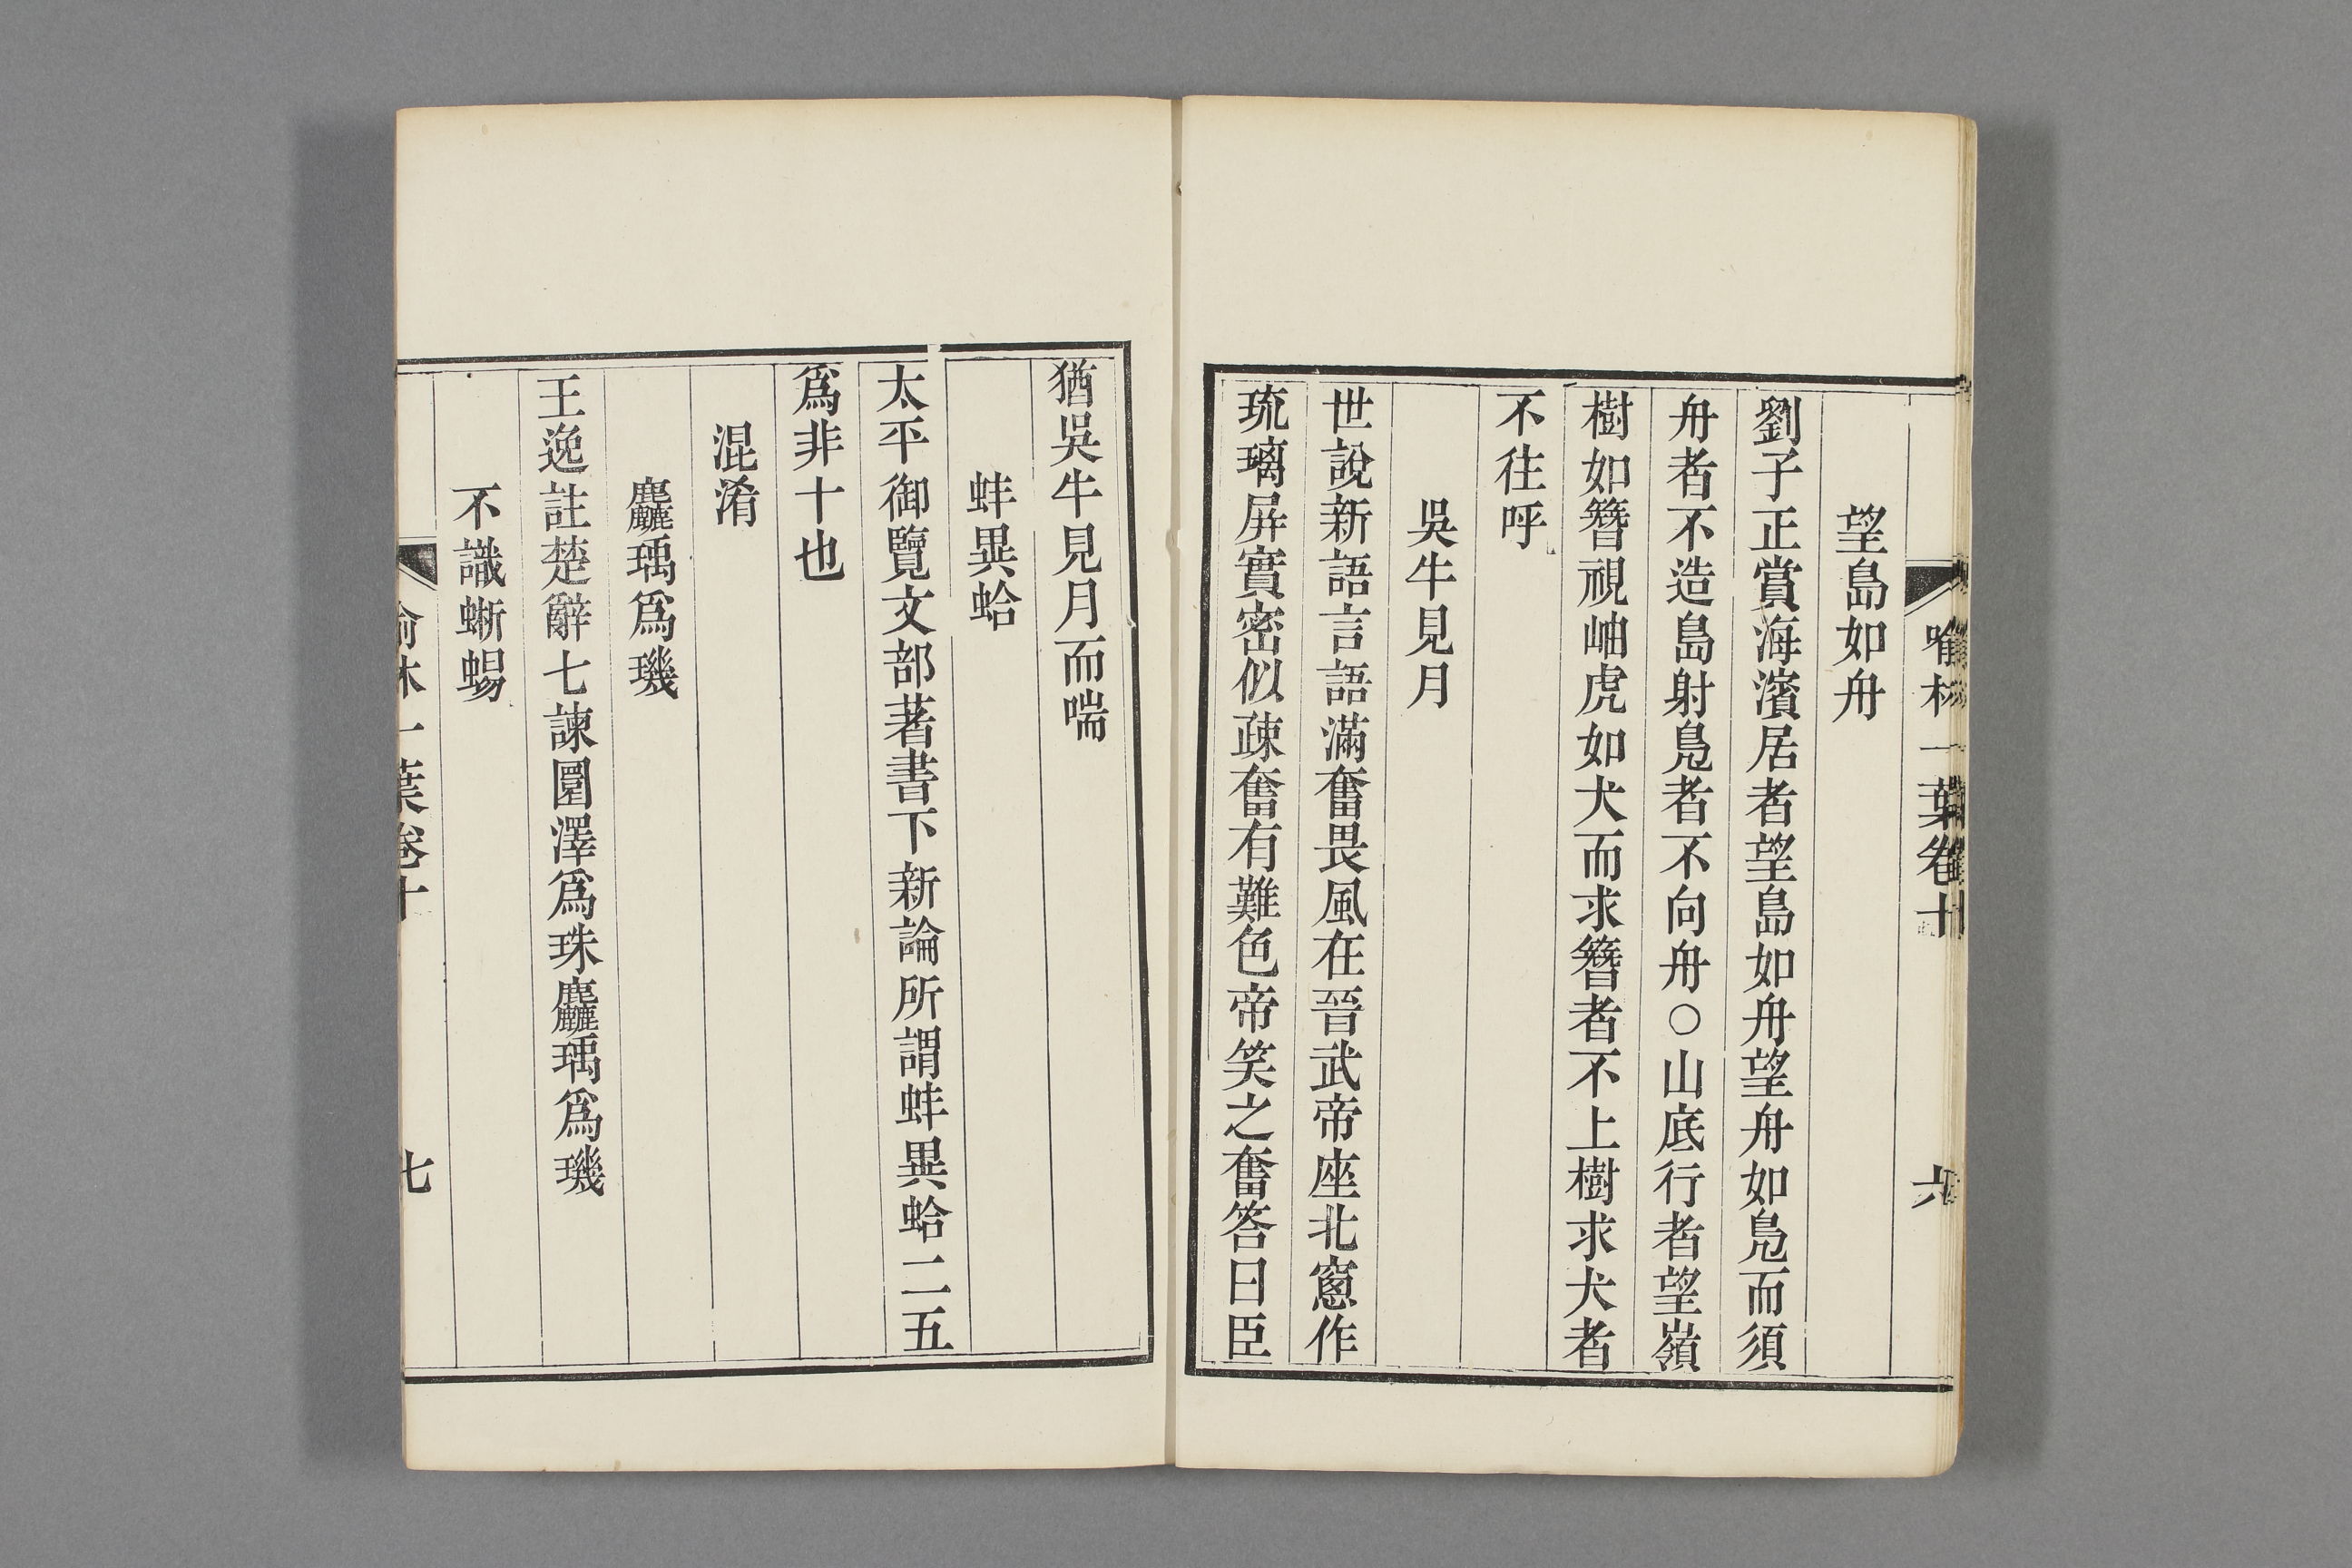 喻林一葉卷十
六
望島如舟
劉子正賞海濱居者望島如舟望舟如鳧而須
舟者不造島射鳧者不向舟○山底行者望嶺
樹如簪視岫虎如犬而求簪者不上樹求犬者
不往呼
吳牛見月
世說新語言語滿奮畏風在晉武帝座北窻作
琉璃屛實密似疎奮有難色帝笑之奮答曰臣
猶吳牛見月而喘
蚌異蛤
太平御覽文部著書下新論所謂蚌異蛤二五
爲非十也
混淆
麤瑀爲璣
王逸註楚辭七諫圜澤爲珠麤瑀爲璣
不識蜥蜴
喻林一葉卷十
七